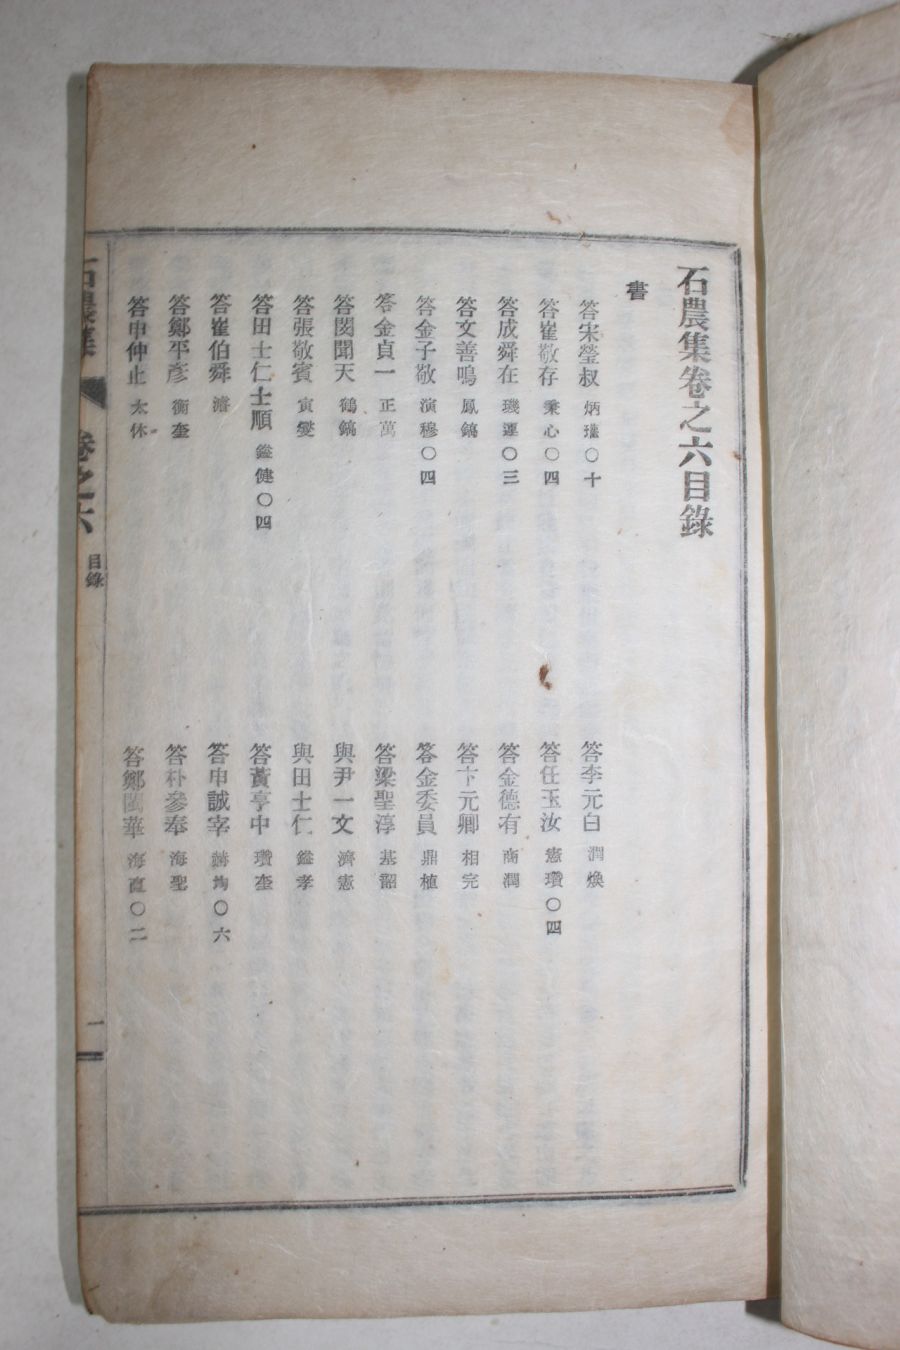 石農集卷之六目錄
書
答宋瑩叔 炳瓘○十
答李元白 潤煥
答崔敬存 秉心○四
答任玉汝 憲瓚○四
答成舜在 璣運○三
答金德有 商潤
答文善鳴 鳳鎬
答卞元卿 相完
答金子敬 演穆○四
答金委員 鼎植
答金貞一 正萬
答梁聖淳 基韶
答閔聞天 鶴鎬
與尹一文 濟憲
答張敬賓 寅燮
與田士仁 鎰孝
答田士仁士順 鎰健○四
答黃亨中 瓚奎
答崔伯舜 濬
答申誠宰 赫均○六
答鄭平彥 衡奎
答朴參奉 海聖
答申仲止 太休
答鄭閩華 海直○二
石農集 卷之六 目錄 一